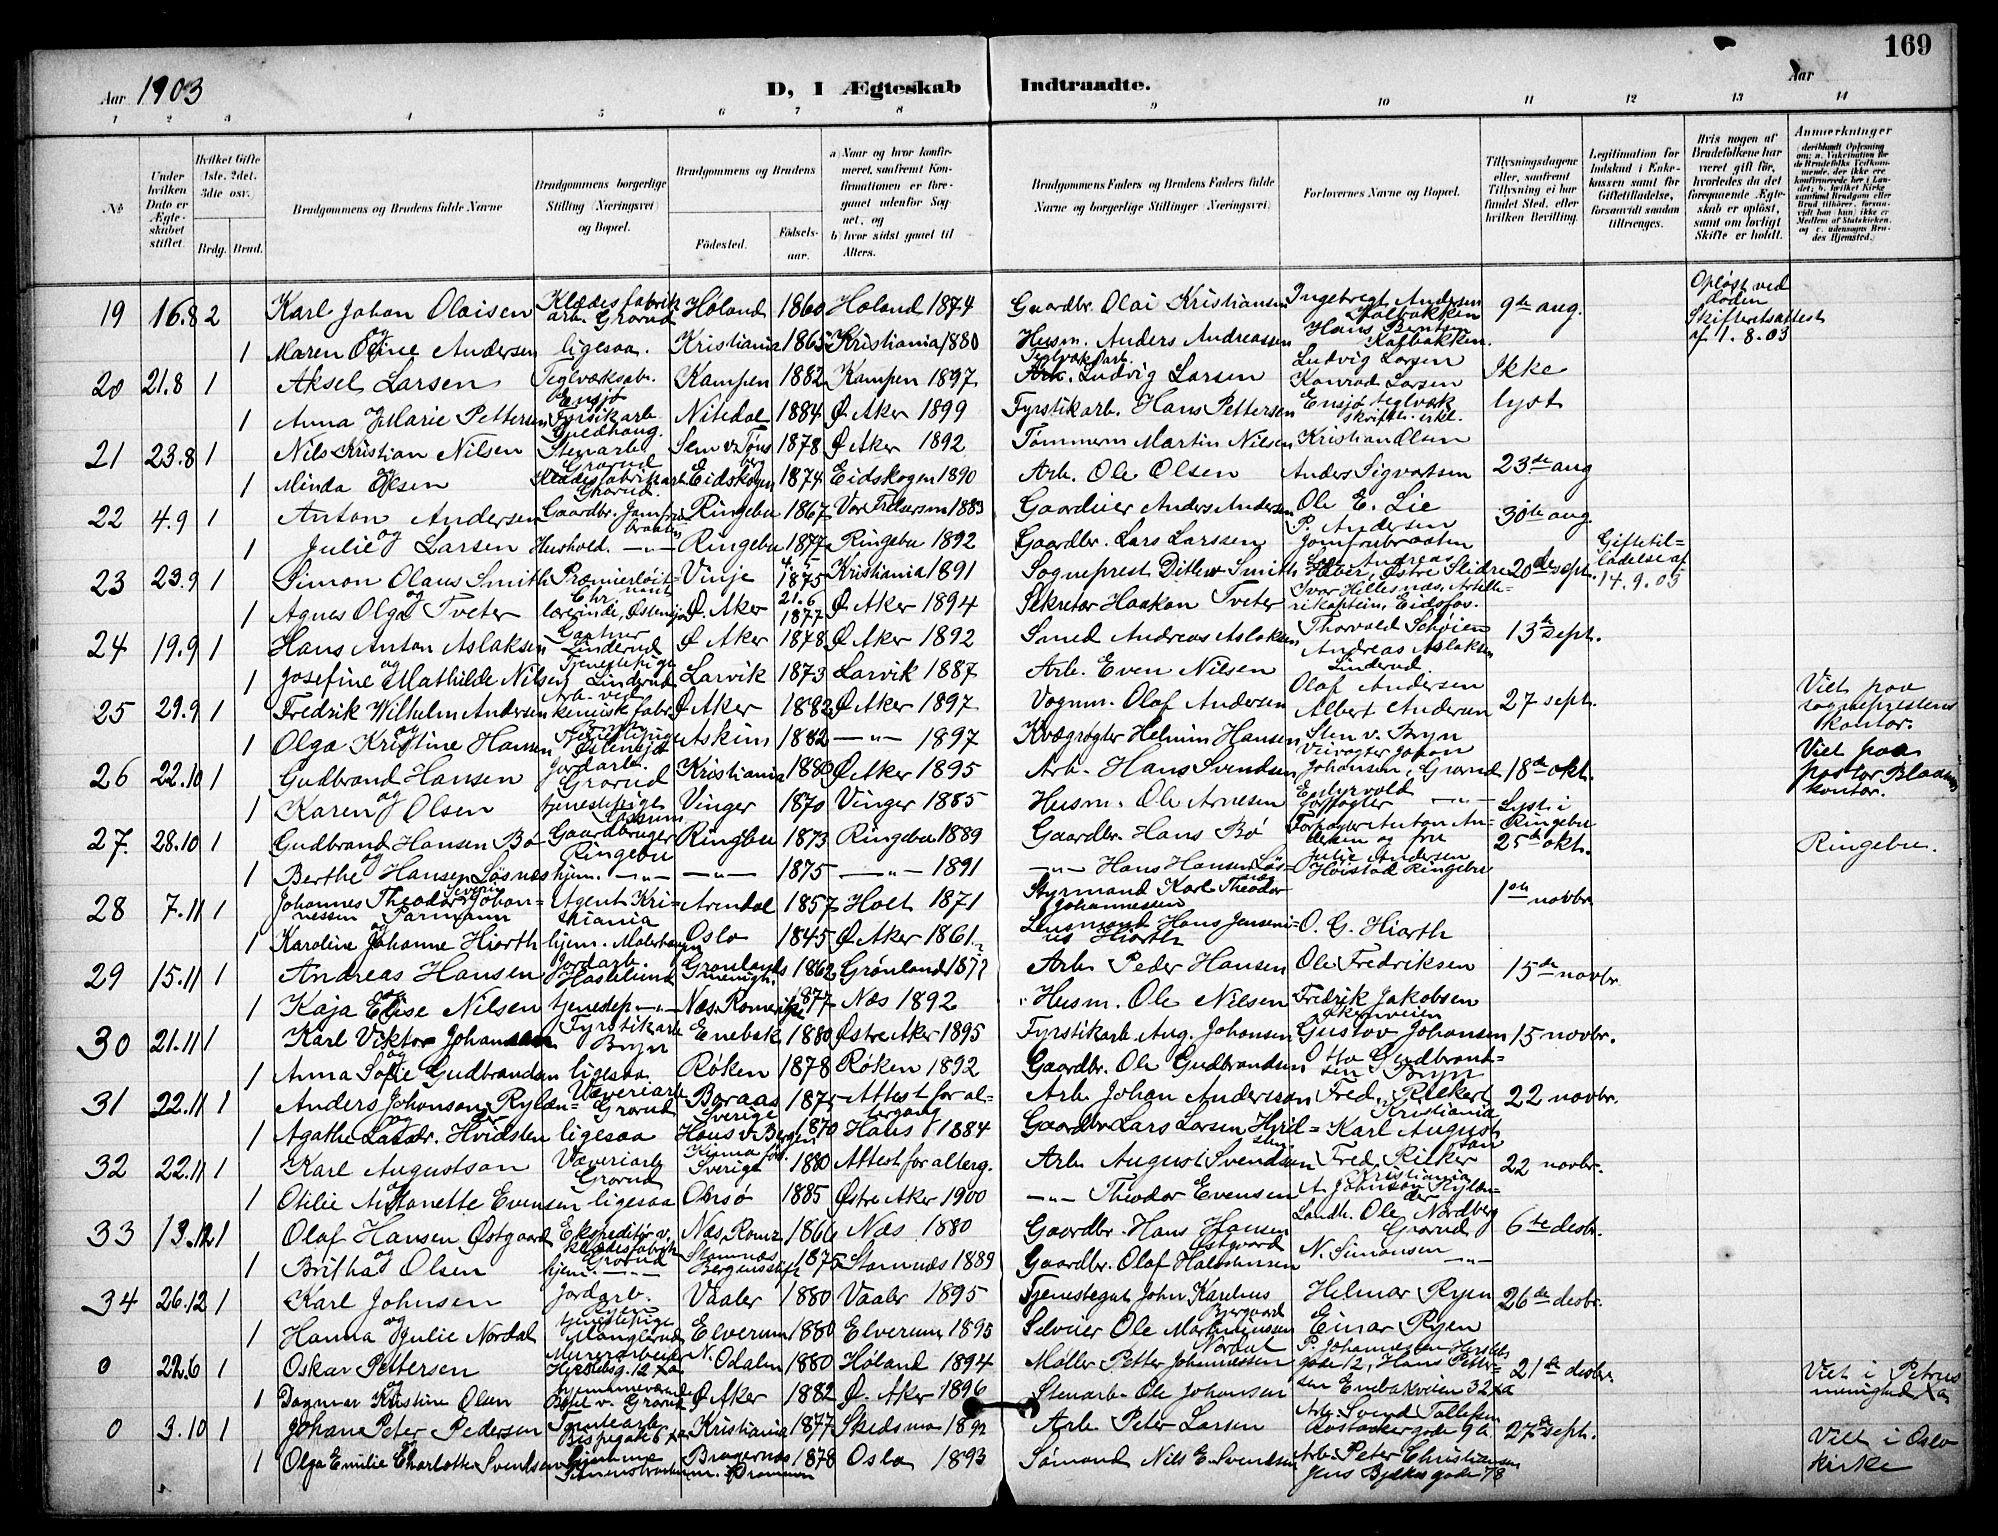 169
Aar 1903 D, I Ægteskab Indtraadte. Aar
1 2 3 4 5 6 7 8 9 10 11 12 13 14
№
Under hvilken Dato er Ægteskabet stiftet.
Hvilket Gifte 1ste. 2det. 3die osv.
Brdg. Brud.
Brudgommens og Brudens fulde Navne
Brudgommens borgerlige Stilling (Næringsvei) og Bopæl.
Brudgommens og Brudens
Fødested. Fødselsaar.
a) Naar og hvor konfirmeret, saafremt Konfirmationen er foregaaet udenfor Sognet, og
b) hvor sidst gaaet til Alters.
Brudgommens Faders og Brudens Faders fulde Navne og borgerlige Stillinger (Næringsvei)
Forlovernes Navne og Bopæl.
Tillysningsdagene eller, saafremt Tillysning ei har fundet Sted, efter hvilken Bevilling.
Legitimation for Indskud i Enkekassen samt for Giftetilladelse, forsaavidt saadan tiltrænges.
Hvis nogen af Brudefolkene har været gift før, hvorledes da det foregaaende Ægteskab er opløst, samt om lovligt Skifte er holdt.
Anmærkninger
19 16.8 2 Karl Johan Olaisen Klædesfabrik arb. Grorud Høland 1860 Høland 1874 Gaardbr. Olai Kristiansen Ingebrigt Andersen Kalbakken 9de aug. Opløst ved døden Skifteretsattest af 1.8.03
og
1 Maren Oline Andersen ligesaa. Kristiania 1865 Kristiania 1880 Husm. Anders Andreassen Hans Bentsen Kalbakken.
20 21.8 1 Aksel Larsen Teglværksabr. Ensjø Kampen 1882 Kampen 1897 Teglværksarb. Ludvig Larsen Ludvig Larsen Konrad Larsen Ikke
1 Anna Marie Pettersen Fyrstikarb Nitedal 1884 Ø. Aker 1899 Fyrstikarb. Hans Pettersen Ensjø teglværk skriftl. erkl. lyst
21 23.8 1 Nils Kristian Nilsen Stenarb. Grorud Sem v. Tønsberg 1878 Ø Aker 1892 Tømmerm Martin Nilsen Kristian Olsen
og
1 Minda Olsen Klædesfabrikarb Grorud. Eidskogen 1874 Eidskogen 1890 Arb. Ole Olsen Anders Sigvartsen 23de aug
22 4.9 1 Anton Andersen Gaardbr. Jomfrubraaten Ringebu 1867 Vor Frelsers m 1883 Gaardeier Anders Andersen Ole E. Lie 30te aug.
og
1 Julie Larsen Hushold. —"— Ringebu 1877 Ringebu 1892 Gaardbr. Lars Larssen P. Andersen Jomfrubraaten
23 23.9 1 Simon Olaus Smith Premierløitnant Vinje 1875 Kristiania 1891 Sogneprest Ditlev Smith Østre Slidre 20de sept. Giftetilladelse af 14.9.03
og
1 Agnes Olga Tveter lærerinde, Østensjø Ø. Aker 21.6 1877 Ø Aker 1894 Sekretær Haakon Tveter Ivar Hillesnæs, Artillerikaptein, Eidsfos.
24 19.9 1 Hans Anton Aslaksen Gartner Linderud Ø Aker 1878 Ø Aker 1892 Smed Andreas Aslaksen Thorvald Schøien 13de sept.
og
1 Josefine Mathilde Nilsen Tjenestepige Linderud Larvik 1873 Larvik 1887 Arb. Even Nilsen Andreas Aslaksen Linderud.
25 29.9 1 Fredrik Wilhelm Andersen Arb. ved kemisk fabr. Ø Aker 1882 Ø Aker 1897 Vognm. Olaf Andersen Olaf Andersen Albert Andersen 27 sept. Viet paa sogneprestens kontor.
og
1 Olga Kristine Hansen Tjenestepige Østensjø Askim 1882 —"— 1897 Kvægrøgter Helmin Hansen Sten v. Bryn
26 22.10 1 Gudbrand Hansen Jordarb. Grorud Kristiania 1880 Ø Aker 1895 Arb. Hans Svendsen Veivogter Johan Johansen, Grorud 18de okt. Viet paa pastor kontor.
og
1 Karen Olsen tjenestepige Vinger 1870 Vinger 1885 Husm. Ole Arnesen forpagter —"—
27. 28.10 1 Gudbrand Hansen Bø Gaardbruger Ringebu Ringbu 1873 Ringebu 1889 Gaardbr. Hans Bø Forpagter Anton Andersen og fru Lyst i Ringebu 25de okt. Ringebu.
og
1 Berthe Hansen Løsnæs hjem. —"— —"— 1875 —"— 1891 —"— Hans Hansen Løsnæs Julie Andersen Høistad Ringebu
28 7.11 1 Johannes Theodor Severin Johannessen Parmann Agent Kristiania Arendal 1857 Holt 1871 Styrmand Karl Theodor Johannessen 1ste novbr.
og
1 Karoline Johanne Hiorth hjem. Oslo 1845 Ø Aker 1861 Lensmand Hans Jensenius Hiorth O. G. Hiorth
29 15.11 1 Andreas Hansen Jordarb. Haslelund Grønlands menigh. 1862 Grønland 1877 Arb. Peder Hansen Ole Fredriksen 15de novbr.
og
1 Kaja Elise Nilsen tjenestep —"— Næs. Romerike 1877 Næs 1892 Husm. Ole Nilsen Fredrik Jakobsen
30 21.11 1 Karl Viktor Johansen Fyrstikarb Bryn Enebak 1880 Østre Aker 1895 Fyrstikarb Aug. Johansen Gustav Johansen 15 novbr.
og
1 Anna Sofie Gudbrandsen ligesaa Røken 1878 Røken 1892 Gaardbr. Ole Gudbrandsen Otto Gudbrandsen Bryn
31 22.11 1 Anders Johanson Rylander Væveriarb Grorud Boraas Sverige 1875 Attest for altergang Arb. Johan Anderson Fred. Rilkert Kristiania 22 novbr.
og
1 Agathe Larsdr. Hvidsten ligesaa Haus v. Bergen 1870 Haus 1884 Gaardbr Lars Larsen Hvidsten Karl Augustson
32 22.11 1 Karl Augustson Væveriarb Grorud Sverige 1880 Attest for alterg. Arb. August Svendsen Fred. Rilker Kristiania 22 novbr.
1 Otilie Antonette Evensen ligesaa Onsø 1885 Østre Aker 1900 —"— Theodor Evensen A. Johanson Rylander
33 13.12 1 Olaf Hansen Østgaard Ekspeditør v. klædesfabrik Grorud Næs, Romr. 1866 Næs 1880 Gaardbr. Hans Hansen Østgaard Landh. Ole Nordberg Grorud 6te desbr.
og
1 Britha Olsen hjem. —"— Stamnæs Bergensstift 1875 Stamnæs 1889 Gaardbr. Olaf N. Simonsen —"—
34 26.12 1 Karl Johnsen Jordarb. Ryen Vaaler 1880 Vaaler 1895 Tjenestegut John Karelius Bjergaard Helmar Ryen 26de desbr.
og
1 Hanna Julie Nordal tjenestepige Manglerud Elverum 1880 Elverum 1895 Selveier Ole Martiniussen Nordal Einar Ryen
0 22.6 1 Oskar Pettersen Murerarbeider N. Odalen 1880 Høland 1894 Møller Petter Johannessen P. Johannessen gade 12, Hans Pettersen Enebakveien 32 21de desbr Viet i Petrus menighed
og
1 Dagmar Kristine Olsen hjemmeværende Grorud Ø Aker 1882 Ø. Aker 1896 Stenarb. Ole Johansen
0 3.10 1 Johan Peter Pedersen Tomtearb. Bispegate 6 Kristiania 1877 Skedsmo 1892 Arb. Peter Larsen Arb. Svend Tollefsen 27de sept. Viet i Oslo kirke
og
1 Olga Emilie Charlotte Svendsen hjemme Bragernes 1878 Oslo 1893 Sømand Nils E. Svendsen Arb. Peter Christiansen Jens Bjelkes gade 78